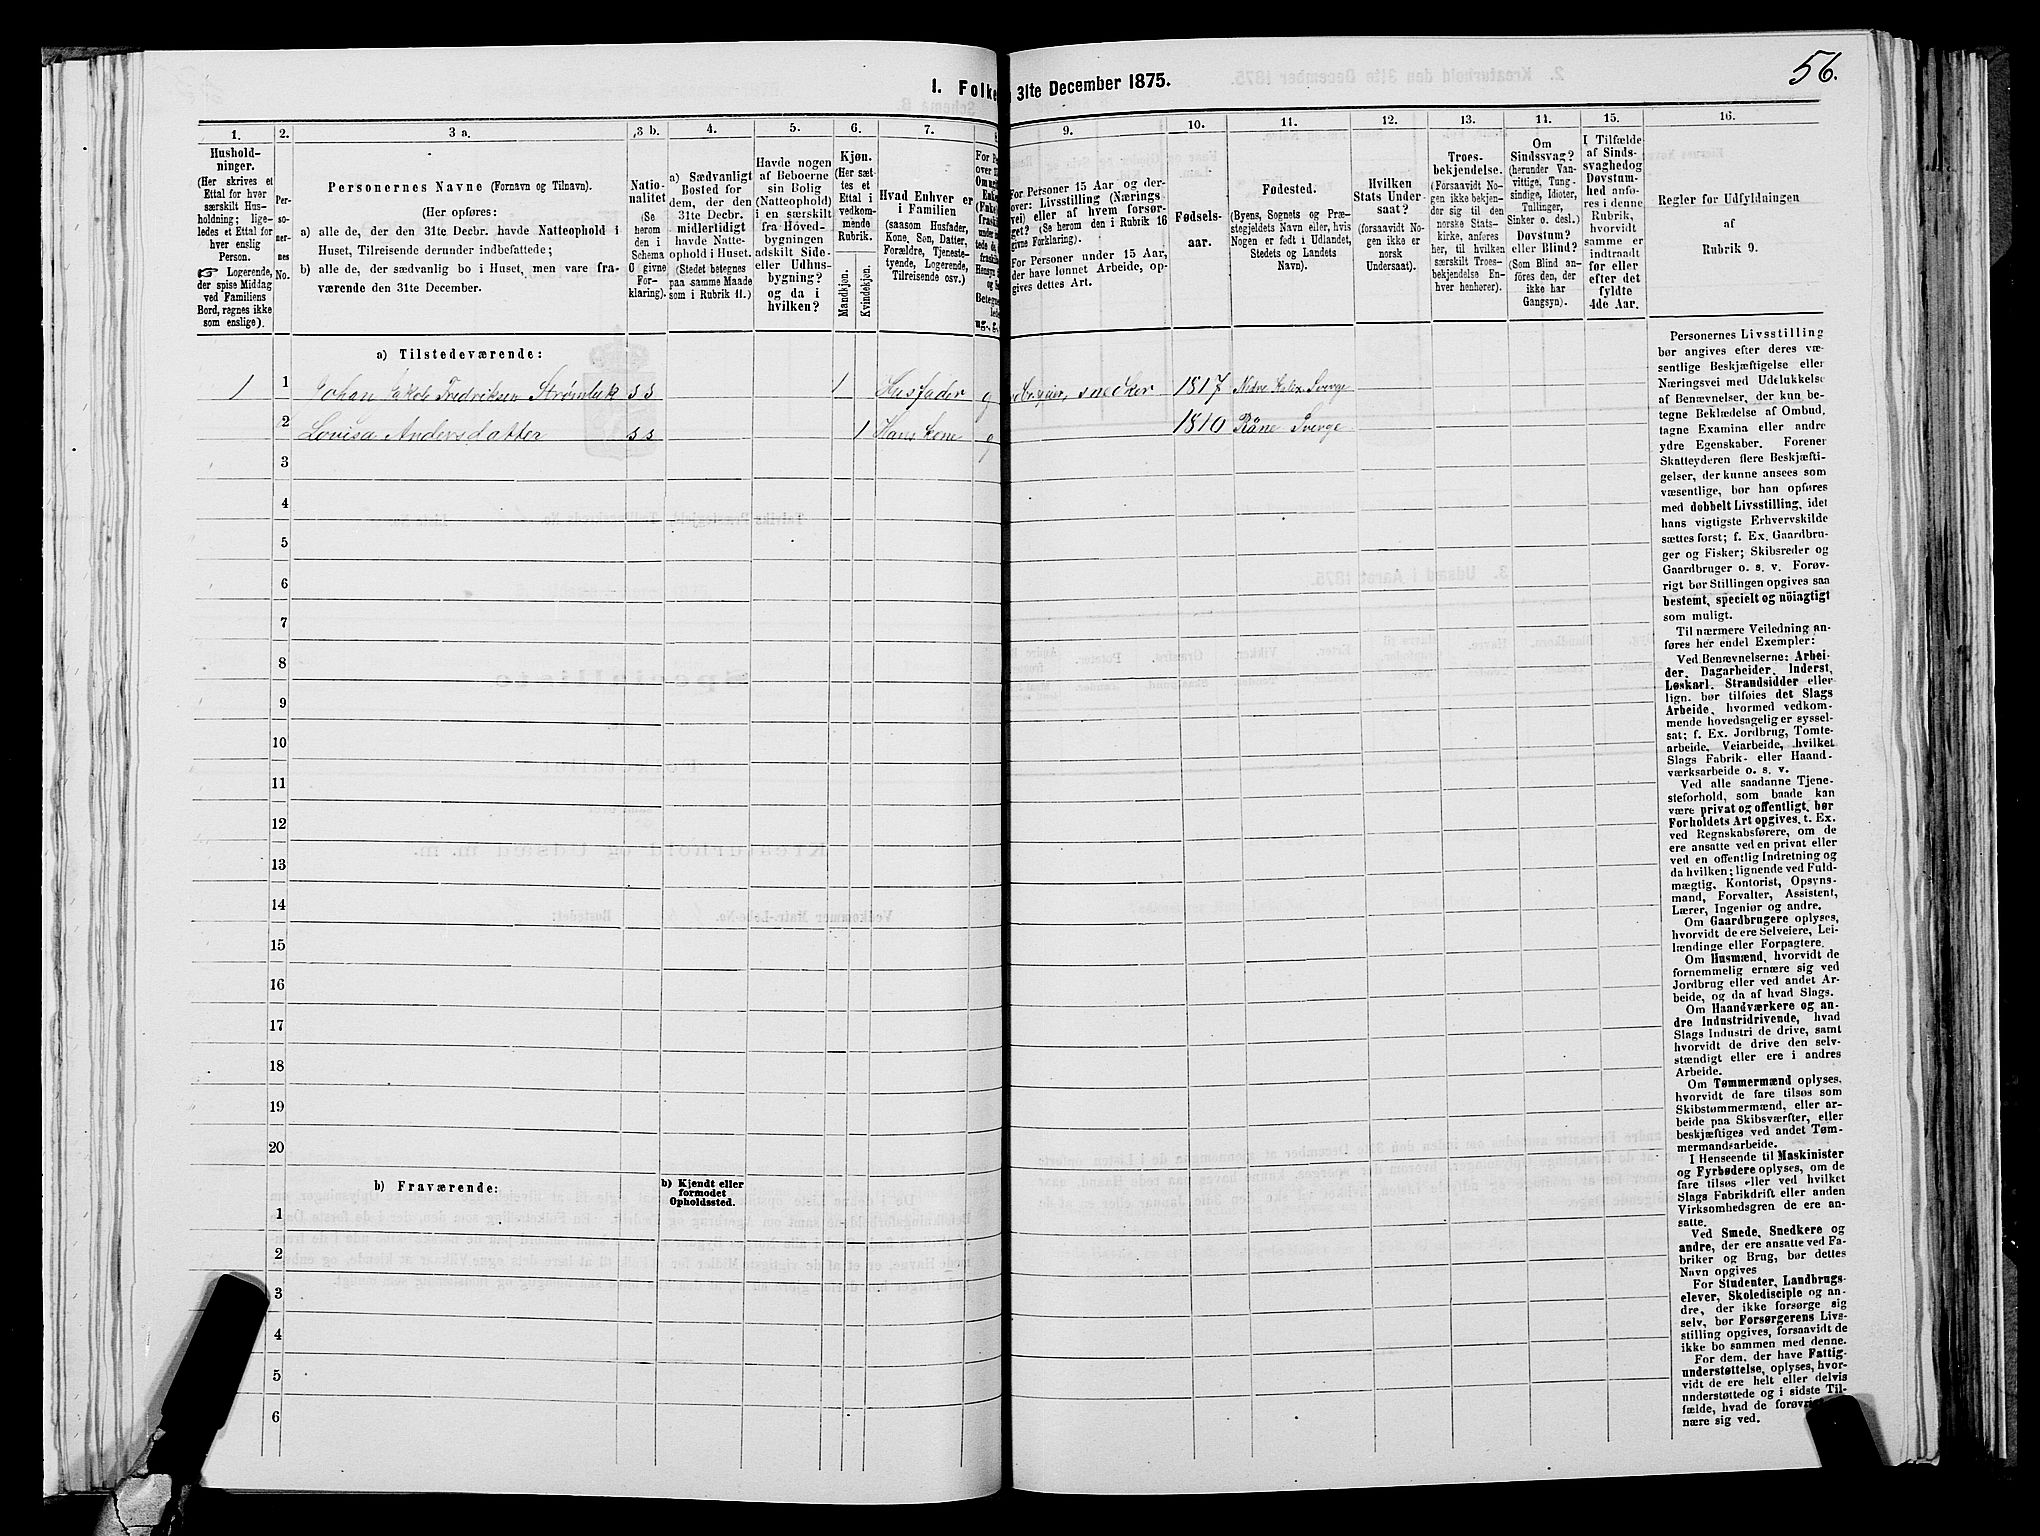 56.
1. Folke
31te December 1875.
1. 2. 3 a. 3 b. 4. 5. 6. 7. 9. 10. 11. 12. 13. 11. 15. 16.
Hushold-
ninger.
(Her skrives et
Ettal for hver
særskilt Hus-
holdning; lige-
ledes et Ettal for
hver enslig
Person.
Logerende,
der spise Middag
ved Familiens
Bord, regnes ikke
som enslige).
Per-
so-
ner-
nes
No.
Personernes Navne (Fornavn og Tilnavn).
(Her opføres:
a) alle de, der den 31te Decbr. havde Natteophold i
Huset, Tilreisende derunder indbefattede;
b) alle de, der sædvanlig bo i Huset, men vare fra-
værende den 31te December.
Natio-
nalitet
(Se
herom
den i
Schema
0 givne
For-
klaring).
a) Sædvanligt
Bosted for
dem, der den
31te Decbr.
midlertidigt
havde Natte-
ophold i Huset.
(Stedet betegnes
paa samme Maade
som i Rubrik 11.)
Havde nogen
af Beboerne
sin Bolig
(Natteophold)
i en særskilt
fra Hoved-
bygningen
adskilt Side-
eller Udhus-
bygning?
og da i
hvilken?
Kjøn.
(Her sæt-
tes et
Ettal i
vedkom-
mende
Rubrik.
Mandkjøn.
Kvindekjøn.
Hvad Enhver er
i Familien
(saasom Husfader,
Kone, Søn, Datter,
Forældre, Tjeneste-
tyende, Logerende,
Tilreisende osv.)
For Personer 15 Aar og der-
over: Livsstilling (Nærings-
vei) eller af hvem forsør-
get? (Se herom den i Rubrik 16
givne Forklaring).
For Personer under 15 Aar,
der have lønnet Arbeide, op-
gives dettes Art.
Fødsels-
aar.
Fødested.
(Byens, Sognets og Præ-
stegjeldets Navn eller, hvis
Nogen er født i Udlandet,
Stedets og Landets
Navn).
Hvilken
Stats Under-
saat?
(forsaavidt No-
gen ikke er
norsk
Undersaat).
Troes-
bekjendelse.
(Forsaavidt No-
gen ikke bekjen-
der sig til den
norske Stats-
kirke, anføres
her, til hvilken
særskilt Troes-
bekjendelse En-
hver henhører).
Om
Sindssvag?
(herunder Van-
vittige, Tung-
sindige, Idioter,
Tullinger,
Sinker o. desl.)
Døvstum?
eller Blind?
(Som Blind an-
føres den, der
ikke har
Gangsyn).
I Tilfælde
af Sinds-
svaghed og
Døvstum-
hed anfø-
res i denne
Rubrik,
hvorvidt
samme er
indtraadt
før eller
efter det
fyldte
4de Aar.
Regler for Udfyldningen
af
Rubrik 9.
a) Tilstedeværende:
1 1 Johan Jakob Fredriksen Strømbek s s 1 Husfader g snedker 1817 Nedre Kalix Sverge
2 Lovisa Andersdatter s s 1 Hans kone g 1810 Råne Sverge
3
4
5
6
7
8
9
10
11
12
13
14
15
16
17
18
19
20
b) Fraværende:
b) Kjendt eller
formodet
Opholdssted.
1
2
3
4
5
6
Personernes Livsstilling
bør angives efter deres væ-
sentlige Beskjæftigelse eller
Næringsvei med Udelukkelse
af Benævnelser, der kun be-
tegne Beklædelse af Ombud,
tagne Examina eller andre
ydre Egenskaber. Forener
Skatteyderen flere Beskjæfti-
gelser, der kunne ansees som
væsentlige, bør han opføres
med dobbelt Livsstilling, idet
hans vigtigste Erhvervskilde
sættes først; f. Ex. Gaardbru-
ger og Fisker; Skibsreder og
Gaardbruger o. s. v. Forøv-
rigt bør Stillingen opgives saa
bestemt, specielt og nöiagtigt
som muligt.
Til nærmere Veiledning an-
føres her endel Exempler:
Ved Benævnelserne: Arbei-
der, Dagarbeider, Inderst,
Løskarl, Strandsidder eller
lign. bør tilføies det Slags
Arbeide, hvormed vedkom-
mende hovedsagelig er syssel-
sat; f. Ex. Jordbrug, Tomte-
arbeide, Veiarbeide, hvilket
Slags Fabrik- eller Haand-
værksarbeide o. s. v.
Ved alle saadanne Tjene-
steforhold, som baade kan
være privat og offentligt, bør
Forholdets Art opgives, t. Ex.
ved Regnskabsførere, om de
ere ansatte ved en privat eller
ved en offentlig Indretning og
da hvilken; lignende ved Fuld-
mægtig, Kontorist, Opsyns-
mand, Forvalter, Assistent,
Lærer, Ingeniør og andre.
Om Gaardbrugere oplyses,
hvorvidt de ere Selveiere, Lei-
lændinge eller Forpagtere.
Om Husmænd, hvorvidt de
fornemmelig ernære sig ved
Jordbrug eller ved andet Ar-
beide, og da af hvad Slags.
Om Haandværkere og an-
dre Industridrivende, hvad
Slags Industri de drive, samt
hvorvidt de drive den selv-
stændigt eller ere i andres
Arbeide.
Om Tømmermænd oplyses,
hvorvidt de fare tilsøs som
Skibstømmermænd, eller ar-
beide paa Skibsværfter, eller
beskjæftiges ved andet Tøm-
mermandsarbeide.
I Henseende til Maskinister
og Fyrbødere oplyses, om de
fare tilsøs eller ved hvilket
Slags Fabrikdrift eller anden
Virksomhedsgren de ere an-
satte.
Ved Smede, Snedkere og
andre, der ere ansatte ved Fa-
briker og Brug, bør dettes
Navn opgives
For Studenter, Landbrugs-
elever, Skoledisciple og an-
dre, der ikke forsørge sig
selv, bør Forsørgerens Livs-
stilling opgives, forsaavidt de
ikke bo sammen med denne.
For dem, der have Fattig-
understøttelse, oplyses, hvor-
vidt de ere helt eller delvis
understøttede og i sidste Til-
fælde, hvad de forøvrigt
nære sig ved.